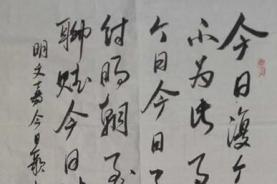 今日復今
不为此事
今日今日
付明朝至
聊赋今日
明文嘉今日歌